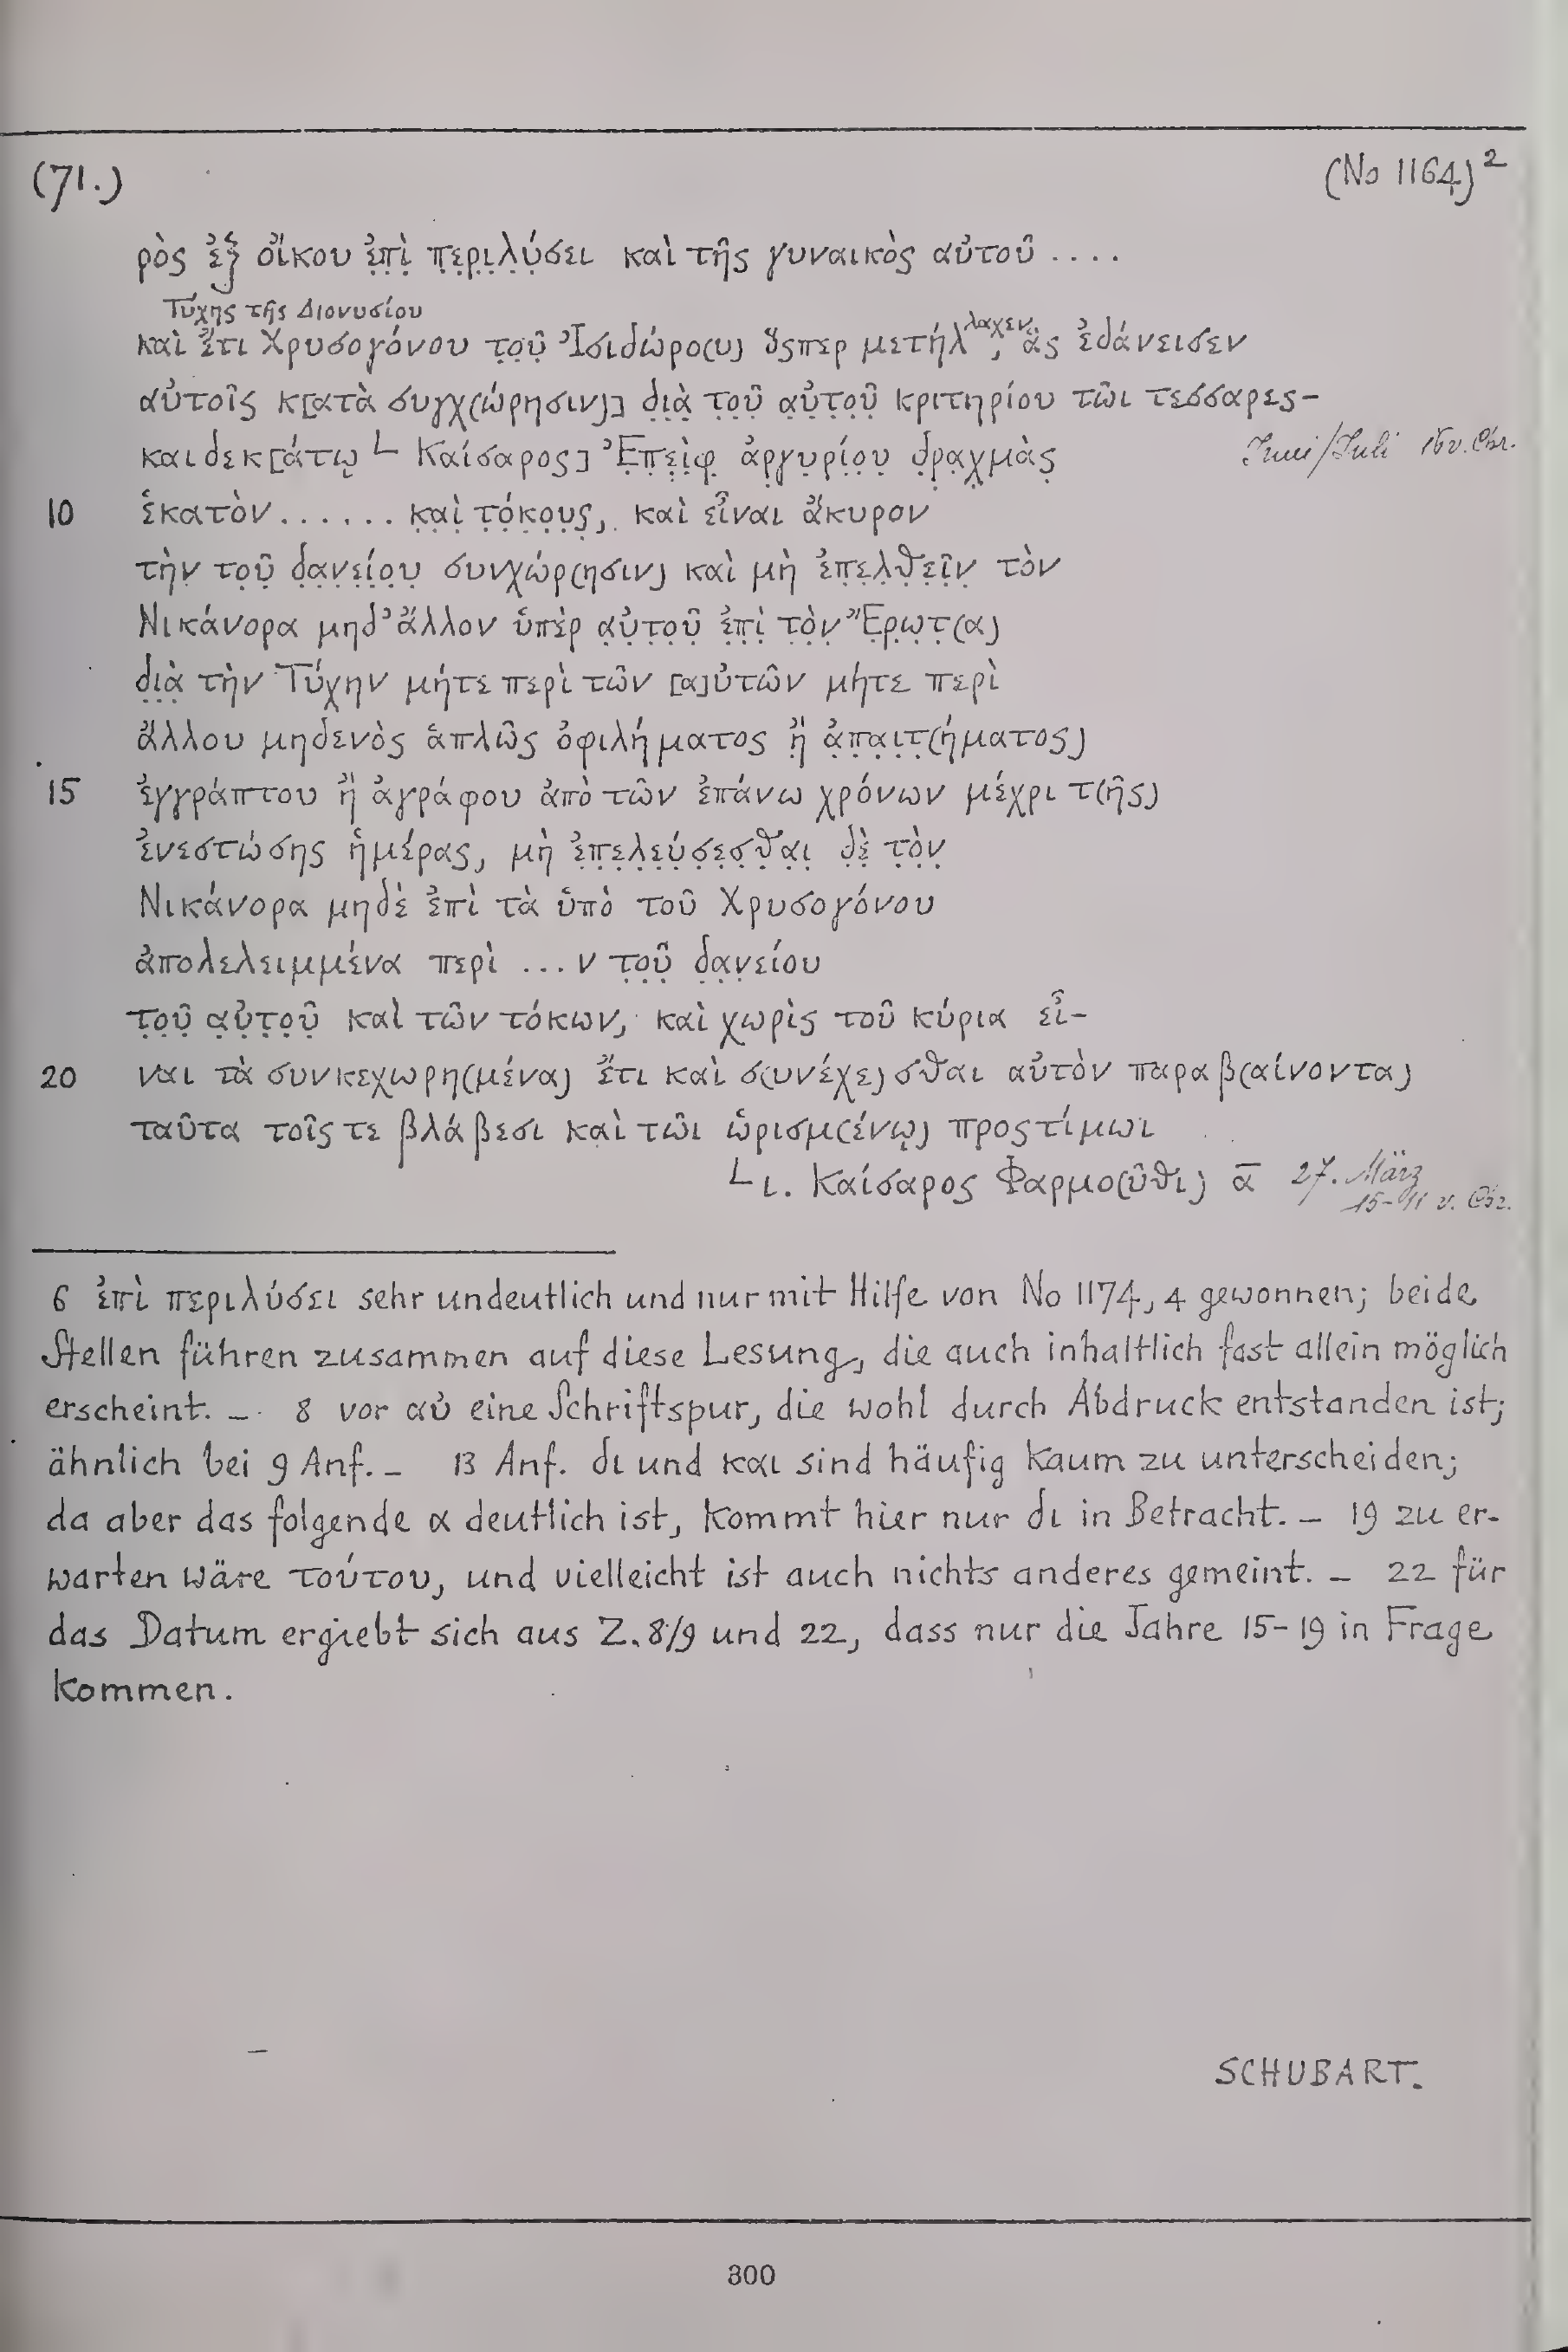 (71.) (No 1164)²
ρὸς ἐξ οἴκου ἐ̣π̣ὶ̣ π̣ε̣ρ̣ι̣λ̣ύ̣σει καὶ τῆς γυναικὸς αὐτοῦ ....
Τύχης τῆς Διονυσίου
καὶ ἔτι Χρυσογόνου τ̣ο̣ῦ̣ Ἰσιδώρο(υ) ὅςπερ μετήλλαχεν, ἃς ἐδάνεισεν
αὐτοῖς κ[ατὰ συγχ(ώρησιν)] δ̣ι̣ὰ̣ τ̣ο̣ῦ̣ α̣ὐ̣τ̣ο̣ῦ̣ κριτηρίου τῶι τεσσαρες-
καιδεκ[άτῳ L Καίσαρος] Ἐ̣π̣ε̣ὶ̣φ̣ ἀ̣ρ̣γ̣υ̣ρ̣ί̣ο̣υ̣ δ̣ρ̣α̣χ̣μ̣ὰ̣ς̣ Juni/Juli 16 v. Chr.
10 ἑκατὸν ...... κ̣α̣ὶ̣ τ̣ό̣κ̣ο̣υ̣ς̣, καὶ εἶναι ἄκυρον
τὴν̣ τ̣ο̣ῦ̣ δ̣α̣ν̣ε̣ί̣ο̣υ̣ συνχώρ(ησιν) καὶ μὴ ἐ̣π̣ε̣λ̣θ̣ε̣ῖ̣ν̣ τὸν
Νικάνορα μηδ’ ἄλλον ὑπὲρ α̣ὐ̣τ̣ο̣ῦ̣ ἐ̣π̣ὶ̣ τ̣ὸ̣ν̣ Ἔ̣ρ̣ω̣τ̣(α)
δ̣ι̣ὰ̣ τὴν Τύχην μήτε περὶ τῶν [α]ὐτῶν μήτε περὶ
ἄλλου μηδενὸς ἁπλῶς ὀφιλήματος ἢ̣ ἀ̣π̣α̣ι̣τ̣(ήματος)
15 ἐγγράπτου ἢ ἀγράφου ἀπὸ τῶν ἐπάνω χρόνων μέχρι τ(ῆς)
ἐνεστώσης ἡμέρας, μὴ ἐ̣π̣ε̣λ̣ε̣ύ̣σ̣ε̣σ̣θ̣α̣ι̣ δ̣ὲ̣ τ̣ὸ̣ν̣
Νικάνορα μηδὲ ἐπὶ τὰ ὑπὸ τοῦ Χρυσογόνου
ἀπολελειμμένα περὶ ...ν τ̣ο̣ῦ̣ δ̣α̣ν̣είου
τ̣ο̣ῦ̣ α̣ὐ̣τ̣ο̣ῦ̣ καὶ τῶν τόκων, καὶ χωρὶς τοῦ κύρια εἶ-
20 ναι τὰ συνκεχωρη(μένα) ἔτι καὶ σ(υνέχε)σθαι αὐτὸν παραβ(αίνοντα)
ταῦτα τοῖς τε βλάβεσι καὶ τῶι ὡρισμ(ένῳ) προςτίμωι
L ι. Καίσαρος Φαρμο(ῦθι) ᾱ 27. März
15-11 v. Chr.
6 ἐπὶ περιλύσει sehr undeutlich und nur mit Hilfe von No 1174, 4 gewonnen; beide
Stellen führen zusammen auf diese Lesung, die auch inhaltlich fast allein möglich
erscheint. – 8 vor αὐ eine Schriftspur, die wohl durch Abdruck entstanden ist;
ähnlich bei 9 Anf. – 13 Anf. δι und και sind häufig kaum zu unterscheiden;
da aber das folgende α deutlich ist, kommt hier nur δι in Betracht. – 19 zu er-
warten wäre τούτου, und vielleicht ist auch nichts anderes gemeint. – 22 für
das Datum ergiebt sich aus Z. 8/9 und 22, dass nur die Jahre 15-19 in Frage
kommen.
SCHUBART.
300